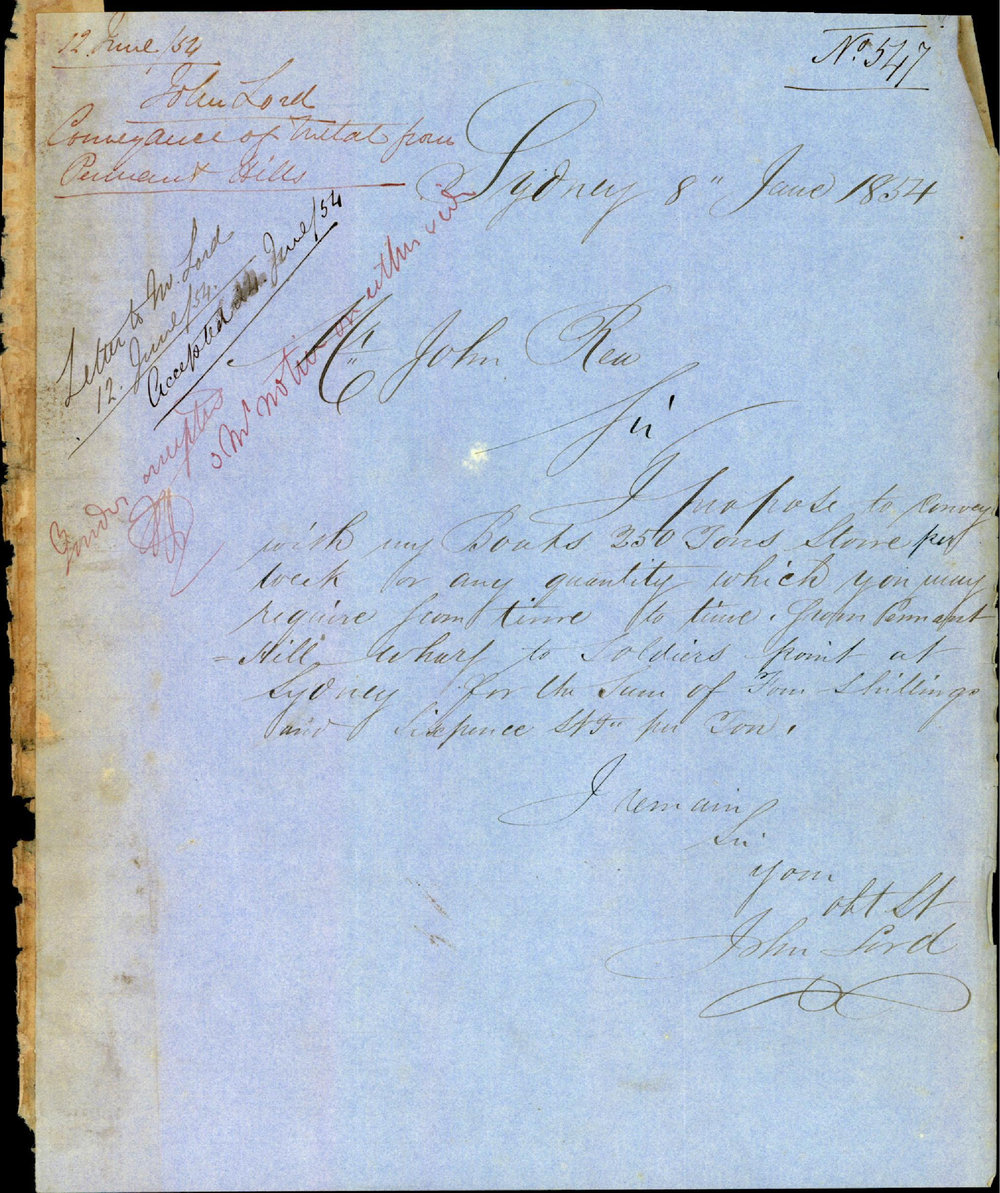 12 June /54
John Lord
Conveyance of Metal from
Pennant Hills
No. 547
Sydney 8" June 1854
Letter to Mr. Lord
12. June /54.
Accepted 24. June /54
Tender accepted
Mr John Rea
Sir
I propose to convey
with my Boats 250 Tons Stone per
week or any quantity which you may
require from time to time. from Pennant
= Hill wharf to Soldiers point at
Sydney for the Sum of Four Shillings
and Sixpence St per Ton.
I remain
Sir
your
obt St
John Lord